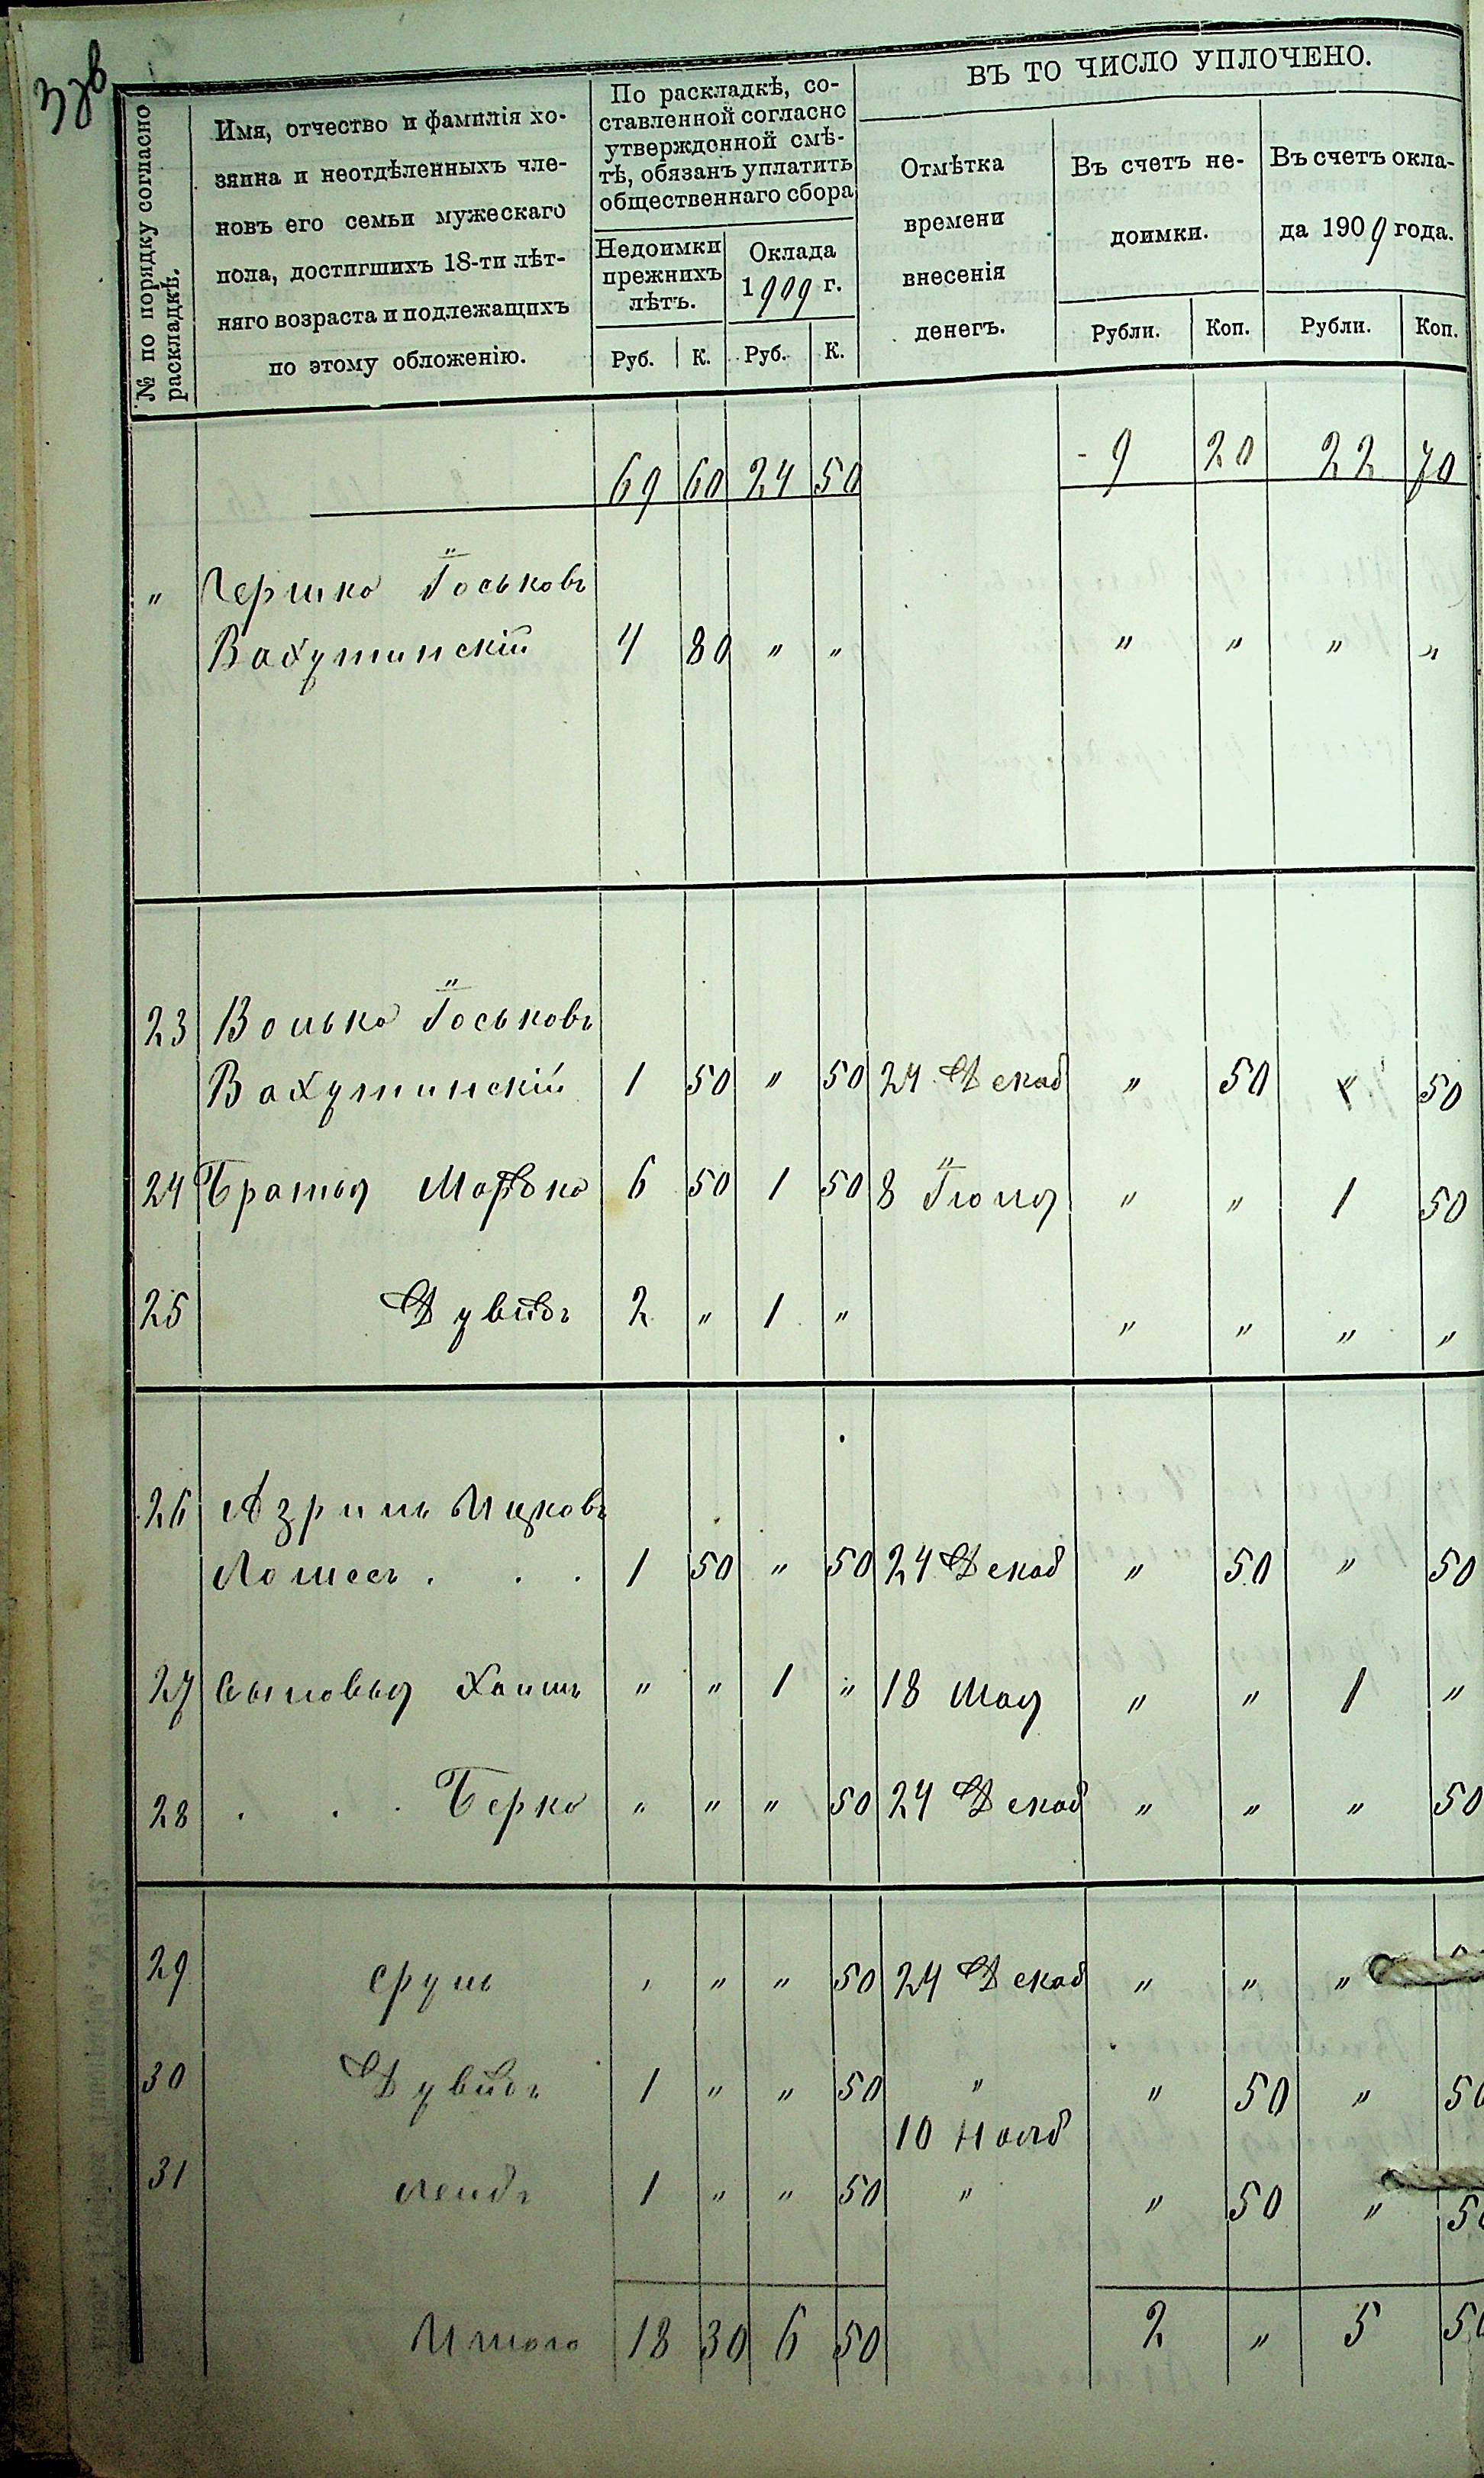 № по порядку согласно раскладкѣ.
Имя, отчество и фамилія хо-
зяина и неотдѣленныхъ чле-
новъ его семьи мужескаго
пола, достигшихъ 18-ти лѣт-
няго возраста и подлежащихъ
по этому обложенію.
По раскладкѣ, со-
ставленной согласно
утвержденной смѣ-
тѣ, обязанъ уплатить
общественнаго сбора
Недоимки
прежнихъ
лѣтъ.
Руб. К.
Оклада
1909 г.
Руб. К.
ВЪ ТО ЧИСЛО УПЛОЧЕНО.
Отмѣтка
времени
внесенія
денегъ.
Въ счетъ не-
доимки.
Рубли. Коп.
Въ счетъ окла-
да 1909 года.
Рубли. Коп.
69 60 24 50 9 20 22 70
" Гершко Іоськовъ
Вахутинскій 4 80 " " " " " "
23 Волько Іоськовъ
Вахутинскій 1 50 " 50 24 Декаб " 50 " 50
24 Братья Мордко 6 50 1 50 8 Іюля " " 1 50
25 Дувидъ 2 " 1 " " " " "
26 Азриль Ицковъ
Лошесъ . . . 1 50 " 50 24 Декаб " 50 " 50
27 Сыновья Хаимъ " " 1 " 18 Мая " " 1 "
28 . . . Берко " " " 50 24 Декаб " " " 50
29 Сруль " " " 50 24 Декаб " " "
30 Дувидъ 1 " " 50 " " 50 " 50
10 Нояб
31 Лейбъ 1 " " 50 " " 50 " 50
Итого 18 30 6 50 2 " 5 50